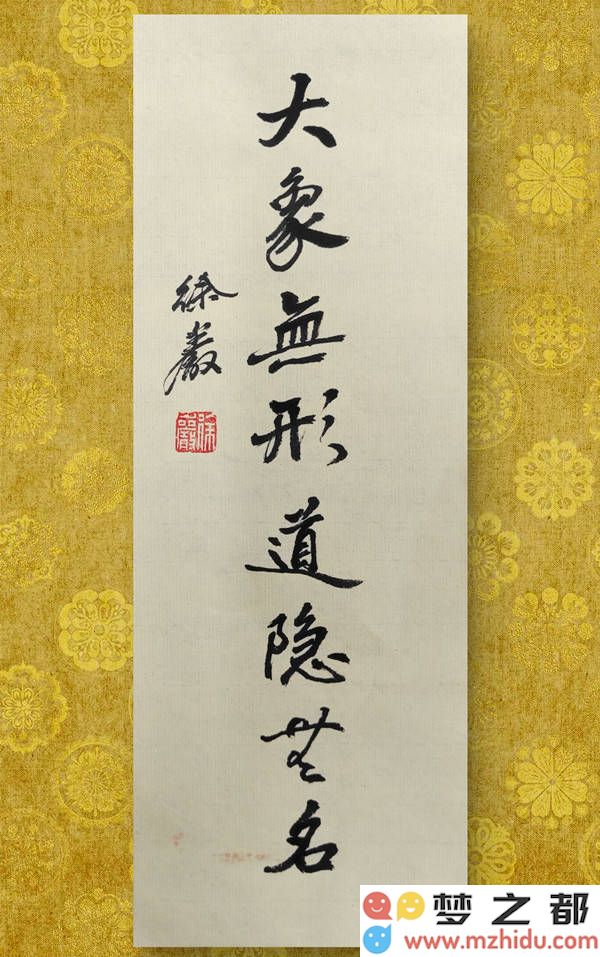 大象無形道隐無名
徐嚴
徐嚴
梦之都
www.mzhidu.com